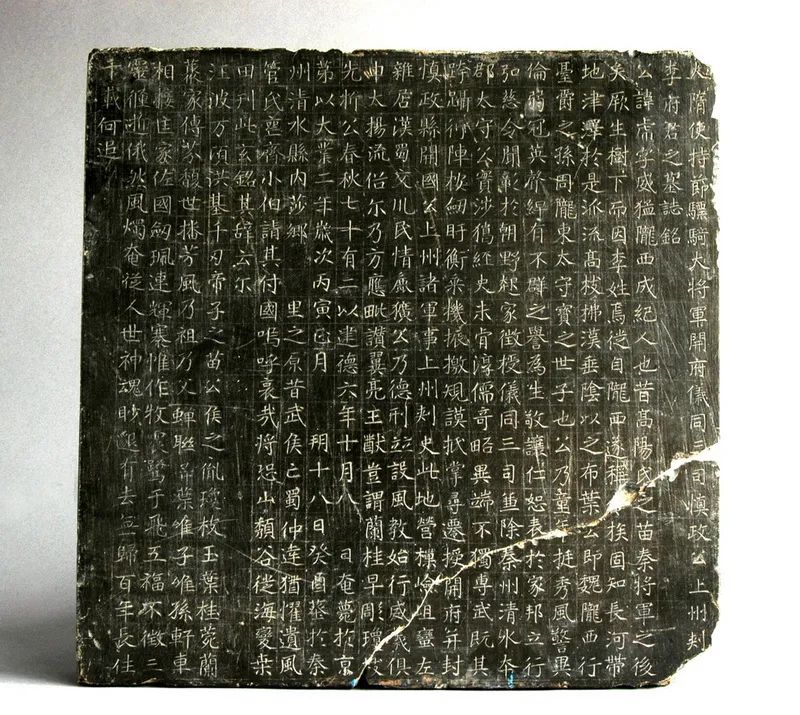 大隋使持節驃騎大將軍開府儀同三司慎政公上州刾
李府君之墓誌銘
公諱虎字威猛隴西成紀人也昔高陽氏之苗秦將軍之後
矣厥生樹下而因李姓焉從自隴西遂稱族固知長河帶
地津澤於是派流高枝拂漢垂陰以之布葉公即魏隴西行
臺爵之孫周隴東太守寶之世子也公乃童年挺秀風警異
倫弱冠英聲綽有不群之譽為生敬讓仁恕表於家邦立行
弘慈令聞彰於朝野起家徵授儀同三司並除秦州清水本
郡太守公實涉獵經史未肯淳儒奇略異端不獨專武阮其
跨躡衝陣杖劒盱衡乘機振撽規謨抵掌尋遷授開府并封
慎政縣開國公上州諸軍事上州刾史此地營橫崄岨蠻左
雜居漢蜀交川民情麁獷公乃德刑並設風教始行感義俱
申太揚流俗尔乃方應毗讚翼亮王猷豈謂蘭桂早彫瓌
先折公春秋七十有二以建德六年十月八 日奄薨於京
第以大業二年歲次丙寅月 朔十八日癸酉葬於秦
州清水縣內莎鄉 里之原昔武侯亡蜀仲達猶懼遺風
管氏喪齊小伯請其付國嗚呼哀哉將恐山頹谷徙海變桒
田刊此玄銘其辞云尔
汪波万頃洪基千刃帝子之苗公侯之胤瓊枚玉葉桂菀蘭
藂家傳芬馥世播芳風乃祖乃父蟬聮弈葉惟子惟孫軒車
相襲住家佐國劒珮連輝褰惟作牧飛五福不徵三
靈俄然風燭奄從人世神魂眇邈行去無歸百年長住
千載何追